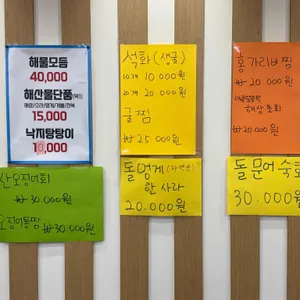 해물모듬
40,000
해산물단품(택1)
15,000
낙지탕탕이
10,000
석화(생굴)
10개 10000원
20개 20000원
굴찜
₩ 25000원
홍가리비찜
₩ 20000원
해삼초회
₩ 20000원
산오징어회
₩ 30.000원
오징어통찜
₩ 30.000원
돌멍게(자연산)
한사라
20.000원
돌문어숙회
30.000원